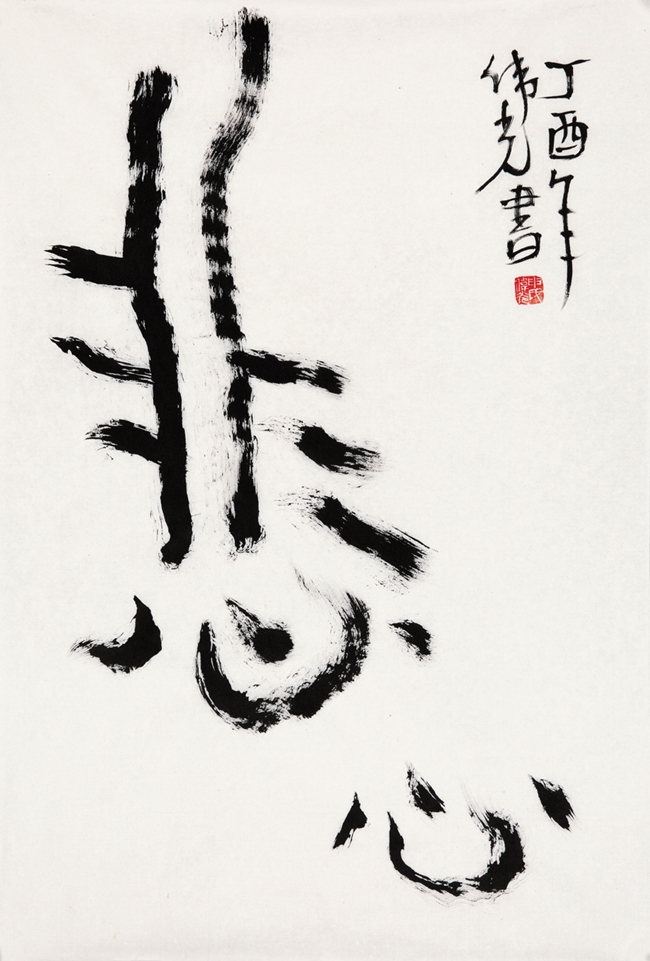 悲心
丁酉年
伟光書